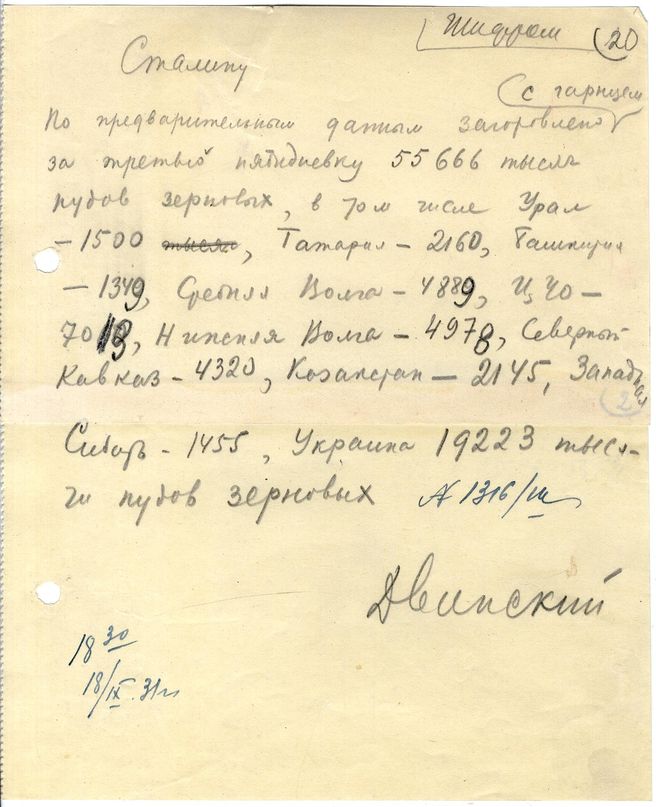 Шифром 20
Сталину
с гарнцем
По предварительным данным заготовлено
за третью пятидневку 55666 тысяч
пудов зерновых, в том числе Урал
– 1500 тысяч, Татария – 2160, Башкирия
– 1349, Средняя Волга – 4889, ЦЧО –
7013, Нижняя Волга – 4978, Северный
Кавказ – 4320, Казакстан – 2145, Западная
2
Сибирь – 1455, Украина 19223 тыся-
чи пудов зерновых N 1316/ш
Двинский
18 30
18/IX.31г